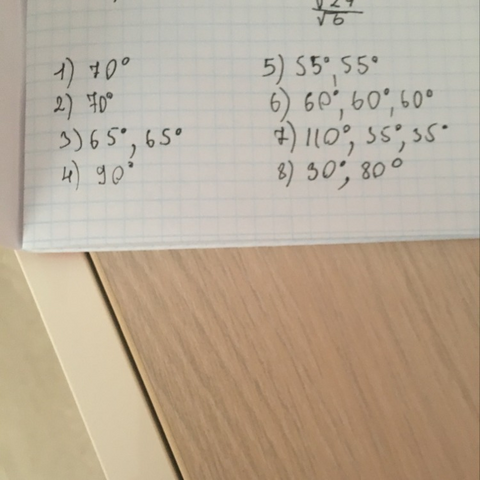 √24
√6
1) 70°
2) 70°
3) 65°, 65°
4) 90°
5) 55°, 55°
6) 60°, 60°, 60°
7) 110°, 35°, 35°
8) 90°, 80°